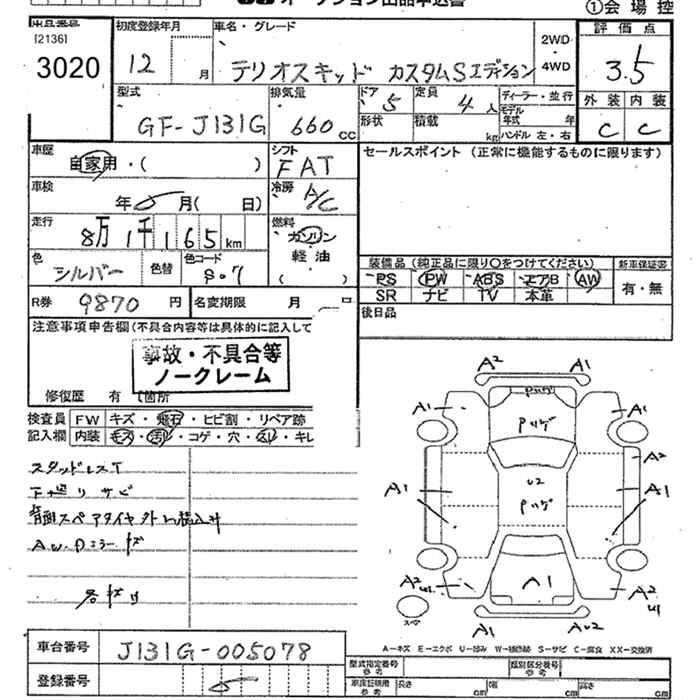 オークション出品申込書
①会場控
出品番号
[2136]
3020
初度登録年月
12 月
車名・グレード
テリオスキッド カスタムSエディション
2WD
4WD
評価点
3.5
外装 内装
C C
型式
GF-J131G
排気量
660 cc
ドア 5
形状
定員 4 人
積載 kg
ディーラー・並行
モデル年式 年
ハンドル 左・右
車歴
自家用・( )
シフト
FAT
セールスポイント(正常に機能するものに限ります)
車検
年 月( 日)
冷房
A/C
走行
8万1千165 km
燃料
ガソリン
軽油
( )
色
シルバー
色替
色コード
S07
装備品(純正品に限り○をつけてください)
新車保証書
PS PW ABS エアB AW
SR ナビ TV 本革
有・無
R券 9870 円
名変期限 月 日
後日品
注意事項申告欄(不具合内容等は具体的に記入して
事故・不具合等
ノークレーム
修復歴 有 ( 箇所
検査員 FW キズ・飛石・ヒビ割・リペア跡
記入欄 内装 キズ・汚れ・コゲ・穴・スレ・キレ
スタッドレスT
下廻りサビ
背面スペアタイヤ外し積込み
AW.Dミラーキズ
各キズ有
A2 A1
Pハゲ
A1 Pハゲ A1
A2
A1 U2 A1
Pハゲ
A2 A1 A2
U1 U1
スペア
A1 AU2
A-キズ E-エクボ U-凹み W-補修跡 S-サビ C-腐食 XX-交換済
車台番号 J131G-005078
登録番号
型式指定番号
参考
類別区分番号
参考
車庫証明用
参考
長さ cm 幅 cm 高さ cm